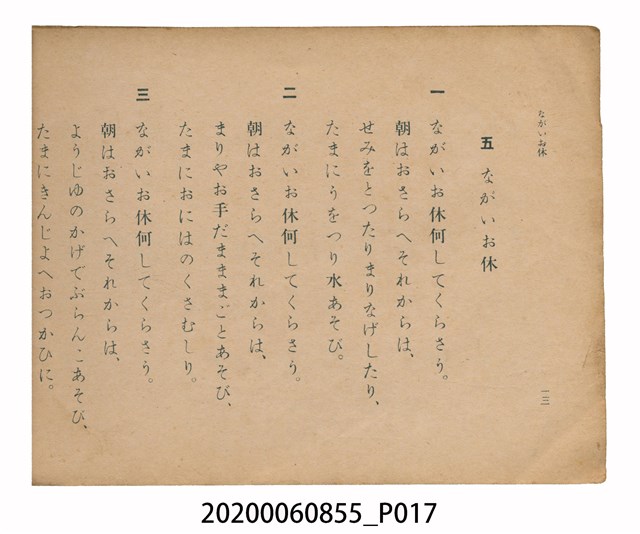 ながいお休
五 ながいお休
一 ながいお休何してくらさう。
朝はおさらへそれからは、
せみをとつたりまりなげしたり、
たまにうをつり水あそび。
二 ながいお休何してくらさう。
朝はおさらへそれからは、
まりやお手だまままごとあそび、
たまにおにはのくさむしり。
三 ながいお休何してくらさう。
朝はおさらへそれからは、
ようじゆのかげでぶらんこあそび、
たまにきんじよへおつかひに。
一三
20200060855_P017